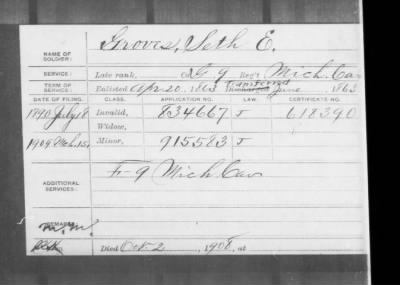 NAME OF SOLDIER: Groves, Seth E.
SERVICE: Late rank, Co. G 9 Reg't Mich. Cav
TERM OF SERVICE: Enlisted Apr. 20 1863 Transferred Discharged June 1863
DATE OF FILING. CLASS. APPLICATION NO. LAW. CERTIFICATE NO.
1890 July 18 Invalid, 834667 J 618390
Widow,
1909 Mch. 15 Minor, 915583 J
ADDITIONAL SERVICES: F-9 Mich Cav
REMARKS:
M. M.
Died Oct. 2, 1908, at